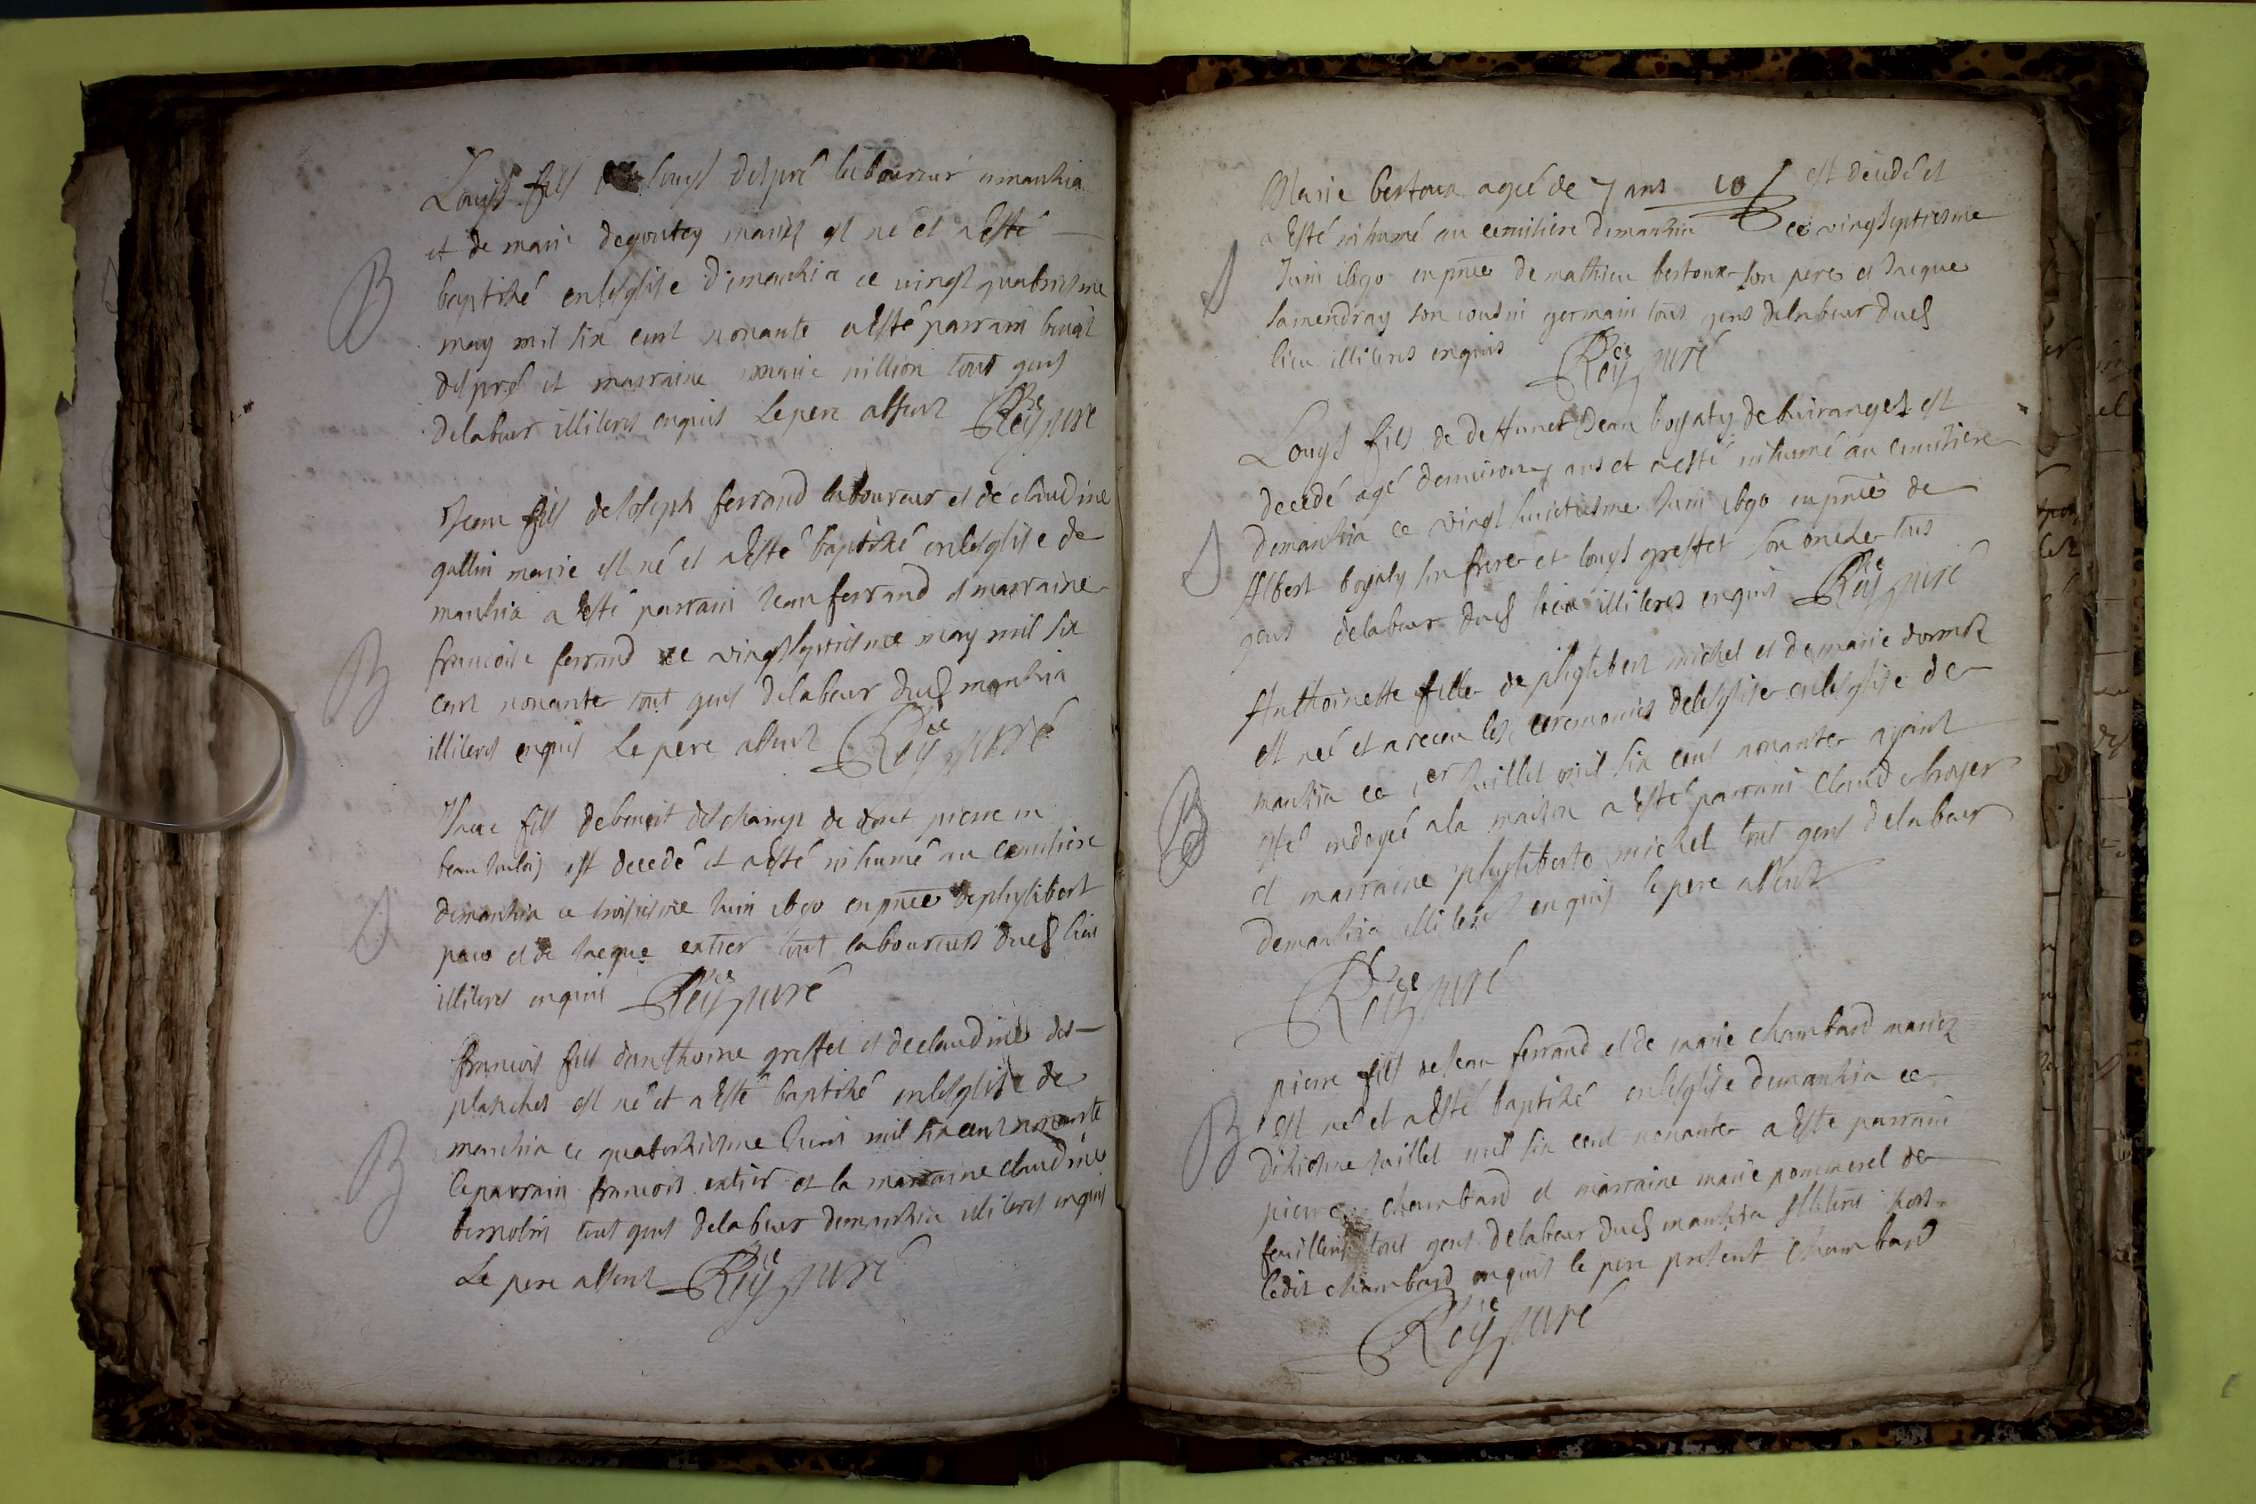 Louys fils de louys despré laboureur a manhia
et de marie degoutey mariés est né et a esté
B
baptisé en lesglise de manhia ce vingt quatriesme
may mil six cent nonante a esté parrain benoit
despré et marraine marie million tout gens
de labeur illiteres enquis Le pere absent Roy curé
Jean fils de Joseph ferrand laboureur et de claudine
gallin marié est né et a esté baptisé en lesglise de
manhia a esté parrain Jean ferrand et marraine
B
francoise ferrand ce vingt septiesme may mil six
cent nonante tout gens de labeur dud manhia
illiteres enquis Le pere absent Roy curé
fils de benoit deschamps de pierre en
est decedé et a esté inhumé au cemitiere
J
de manhia ce troisiesme Juin 1690 en pnce de phylibert
et de Jacque extier tout laboureurs dud lieu
illiteres enquis Roy curé
francois fils danthoine greffet et de claudine des
planches est né et a esté baptisé en lesglise de
B
manhia ce quatorziesme Juin mil six cent nonante
le parrain francois extier et la marraine claudine
tout gens de labeur de manhia illiteres enquis
Le pere absent Roy curé
Marie bertoux ageé de 7 ans 10 est decedé et
a esté inhumé au cemitiere de manhia ce vingt septiesme
J
Juin 1690 en pnce de mathieu bertoux son pere et Jacque
Jamendray son cousin germain tous gens de labeur dud
lieu illiteres enquis Roy curé
Louys fils de deffunct Jean boyaty de buiranges est
decedé agé denuiron 7 ans et a esté inhumé au cemitiere
J
de manhia ce vingt huictiesme Juin 1690 en pnce de
Albert boyaty son frere et louys greffet son oncle tous
gens de labeur dud lieu illiteres enquis Roy curé
Anthoinette fille de phylibert michel et de marie
est neé et a receu les ceremonies de lesglise en lesglise de
B
manhia ce 1er Juillet mil six cent nonante ayant
esté ondoyé a la maison a esté parrain Claud broyer
et marraine phyliberte michel tout gens de labeur
de manhia illiteres enquis le pere absent
Roy curé
pierre fils de Jean ferrand et de marie chambard mariez
B
est né et a esté baptisé en lesglise de manhia ce
dixiesme Juillet mil six cent nonante a esté parrain
pierre chambard et marraine marie pommerel de
feuillens tout gens de labeur dud manhia illiteres hors
ledit chambard enquis le pere present Chambard
Roy curé